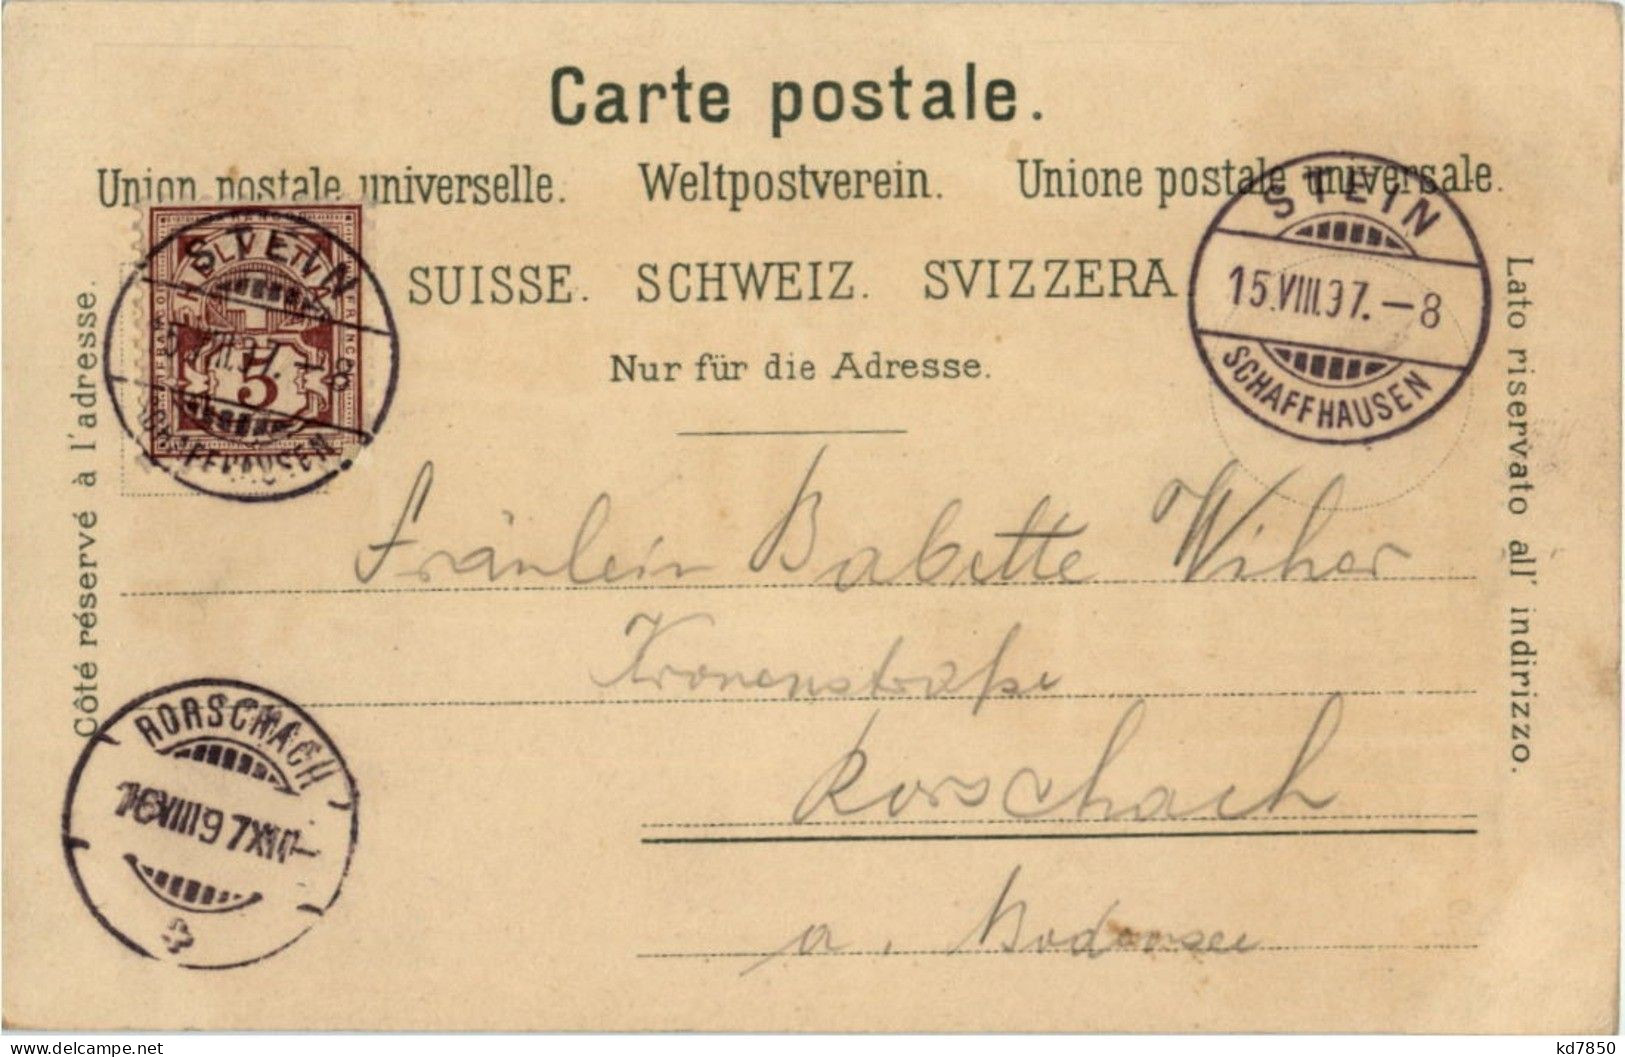 Carte postale.
Union postale universelle. Weltpostverein. Unione postale universale.
SUISSE. SCHWEIZ. SVIZZERA
Nur für die Adresse.
Côté réservé à l'adresse.
Lato riservato all' indirizzo.
HELVETIA
FRANCO
5
STEIN
15.VIII.97.-8
SCHAFFHAUSEN
STEIN
15.VIII.97.-8
SCHAFFHAUSEN
Fräulein Babette Wiher
Kronenstraße
Rorschach
a. Bodensee
RORSCHACH
16VIII97XII-
delcampe.net
kd7850